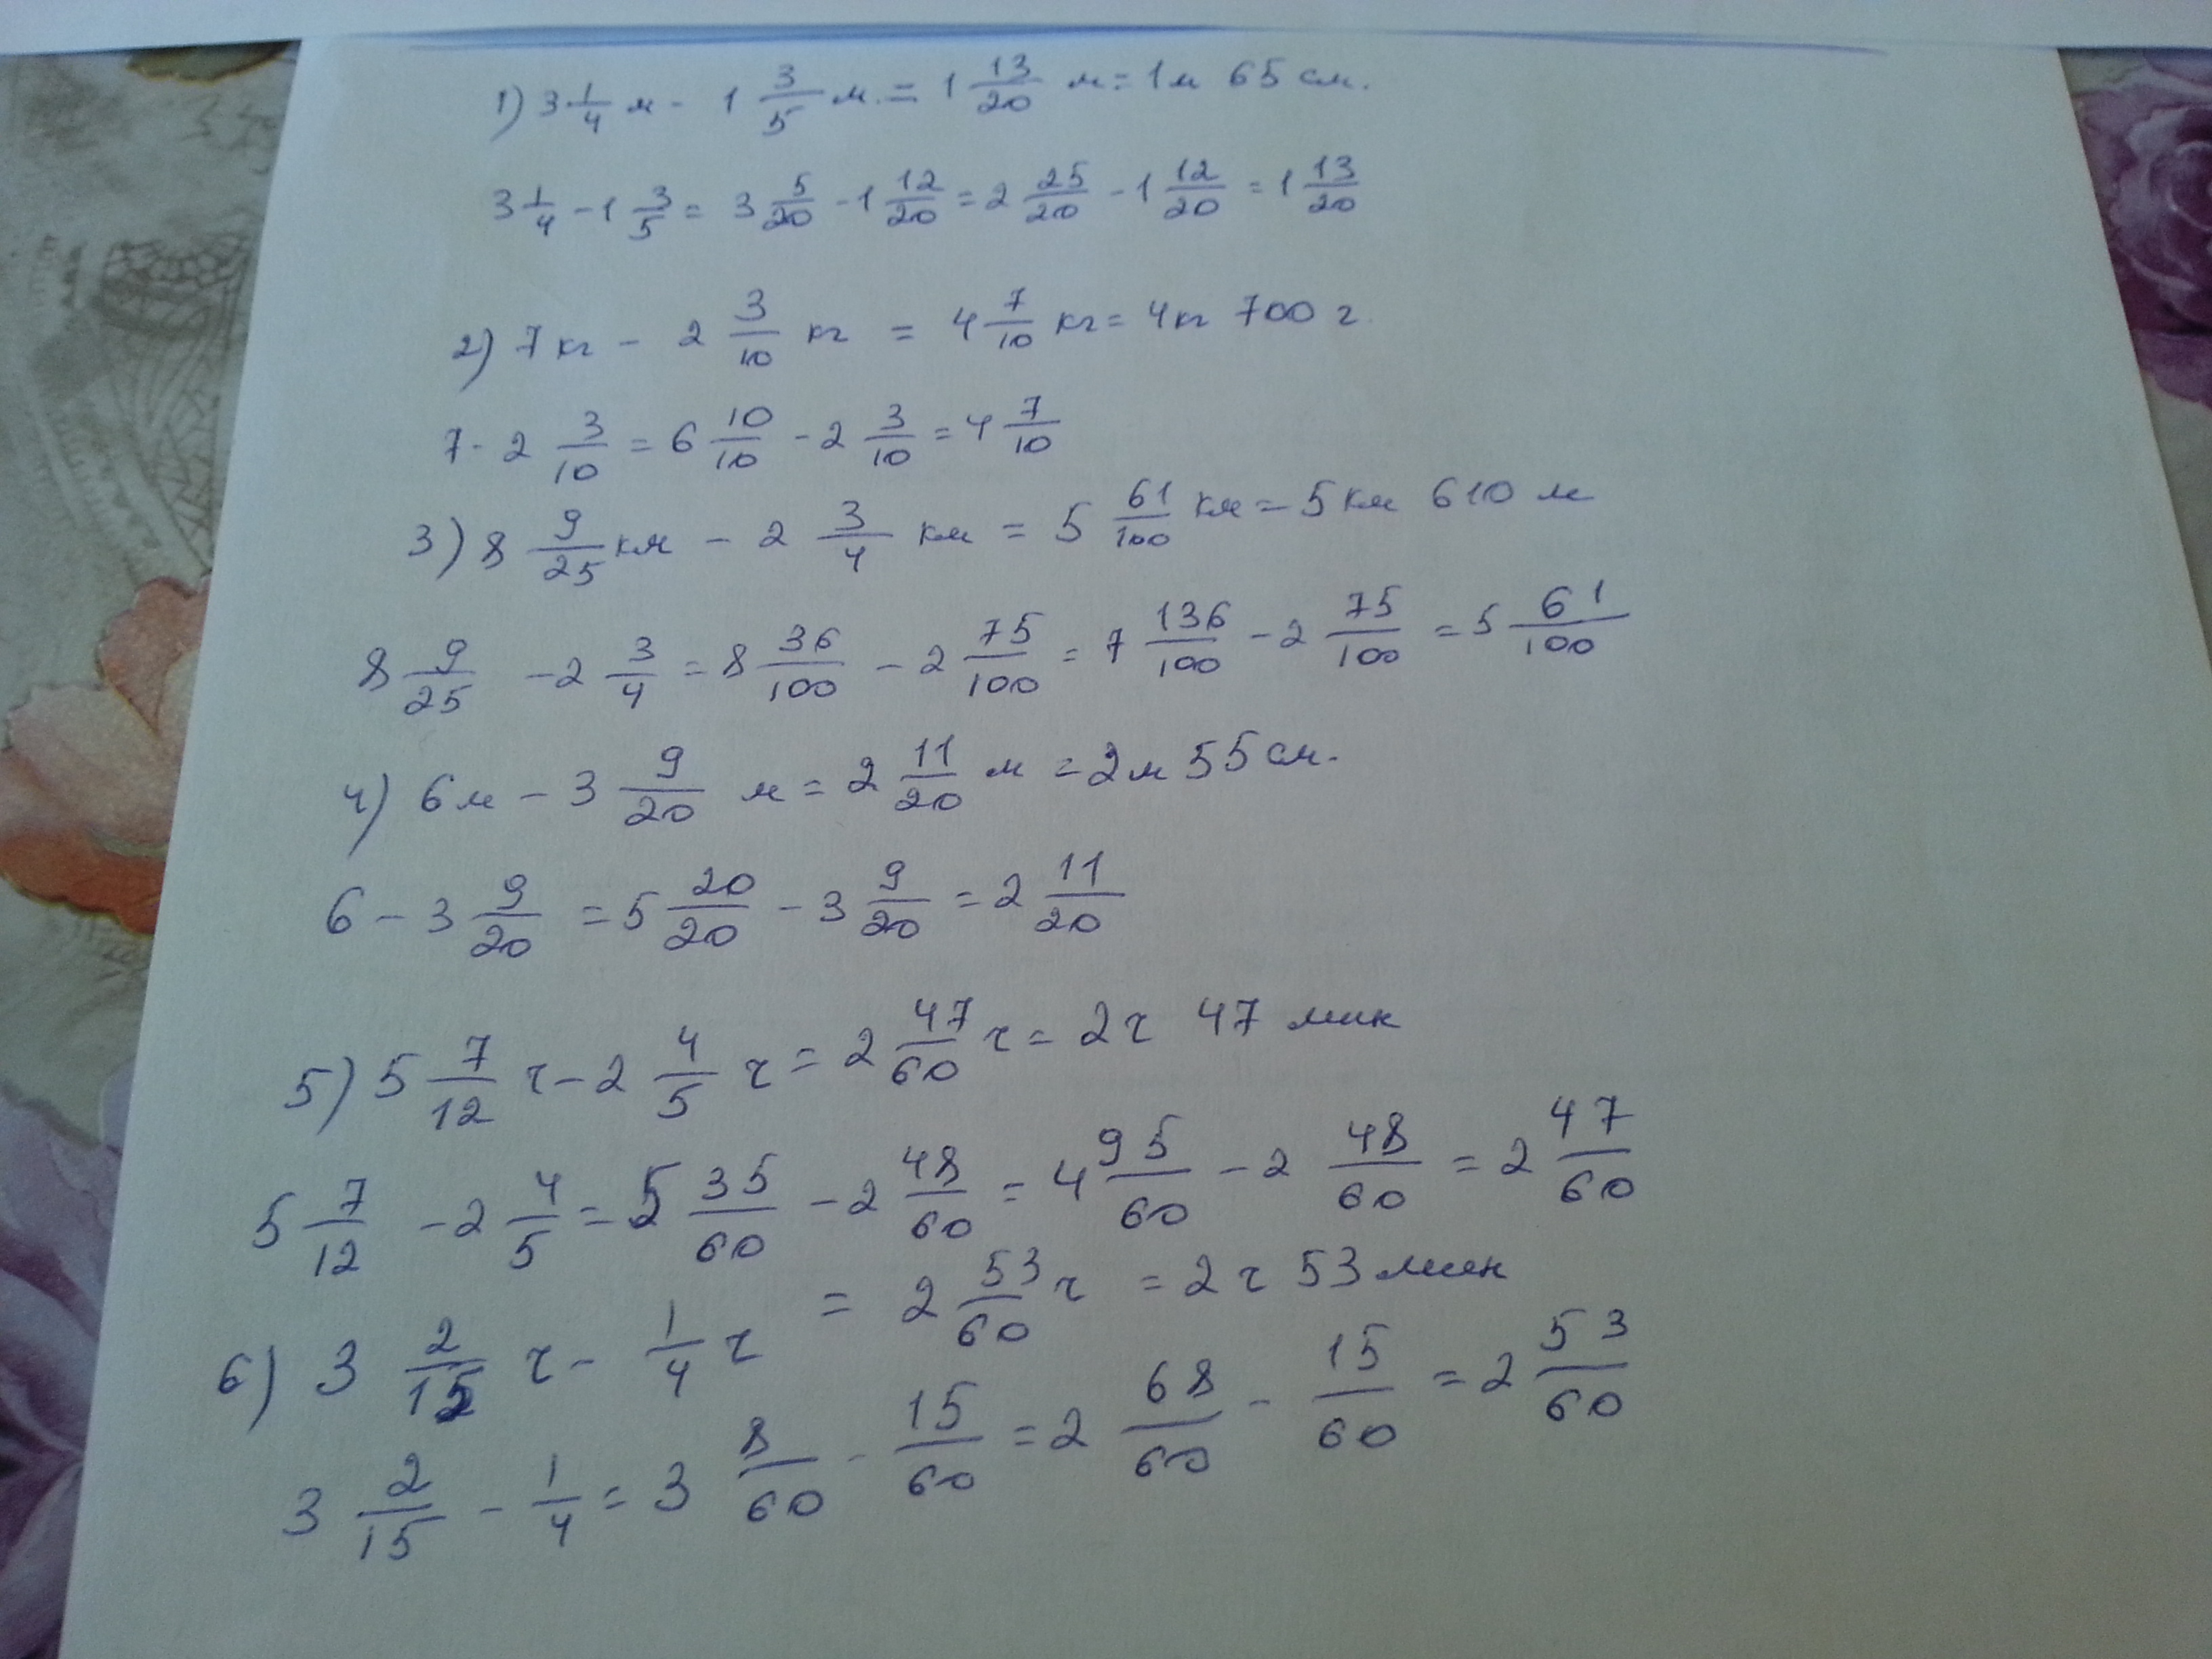 1) 3 1/4 м - 1 3/5 м. = 1 13/20 м = 1м 65 см.
3 1/4 - 1 3/5 = 3 5/20 - 1 12/20 = 2 25/20 - 1 12/20 = 1 13/20
2) 7 кг - 2 3/10 кг = 4 7/10 кг = 4кг 700 г
7 - 2 3/10 = 6 10/10 - 2 3/10 = 4 7/10
3) 8 9/25 км - 2 3/4 км = 5 61/100 км = 5 км 610 м
8 9/25 - 2 3/4 = 8 36/100 - 2 75/100 = 7 136/100 - 2 75/100 = 5 61/100
4) 6м - 3 9/20 м = 2 11/20 м = 2м 55 см.
6 - 3 9/20 = 5 20/20 - 3 9/20 = 2 11/20
5) 5 7/12 ч - 2 4/5 ч = 2 47/60 ч = 2ч 47 мин
5 7/12 - 2 4/5 = 5 35/60 - 2 48/60 = 4 95/60 - 2 48/60 = 2 47/60
6) 3 2/15 ч - 1/4 ч = 2 53/60 ч = 2 ч 53 мин
3 2/15 - 1/4 = 3 8/60 - 15/60 = 2 68/60 - 15/60 = 2 53/60